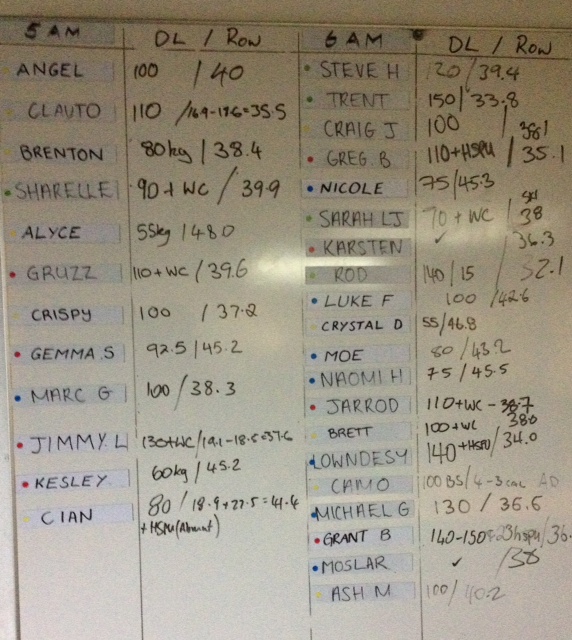 5 AM DL / Row
ANGEL 100 / 40
CLAUTO 110 /16.9-19.6=35.5
BRENTON 80kg / 38.4
SHARELLE 90 + WC / 39.9
ALYCE 55kg / 48.0
GRUZZ 110+WC / 39.6
CRISPY 100 / 37.2
GEMMA S 92.5 / 45.2
MARC G 100 / 38.3
JIMMY L 130+WC / 19.1-18.5=37.6
KESLEY 60kg / 45.2
CIAN 80 / 18.9+22.5=41.4
+ HSPU
6 AM DL / Row
STEVE H 120 / 39.4
TRENT 150 / 33.8
CRAIG J 100 / 38.1
GREG B 110+HSPU / 35.1
NICOLE 75/45.3
SARAH LJ 70 + WC / 38
KARSTEN ✓ 36.3
ROD 140/15 / 32.1
LUKE F 100 / 42.6
CRYSTAL D 55/46.8
MOE 80 / 43.2
NAOMI H 75 / 45.5
JARROD 110+WC - 38.7
BRETT 100+WC 38.0
LOWNDESY 140+HSPU / 34.0
CAMO 100 BS / 4-3 cal AD
MICHAEL G 130 / 36.6
GRANT B 140-150 23hspu / 36.
MOSLAR ✓ / 38
ASH M 100 / 40.2